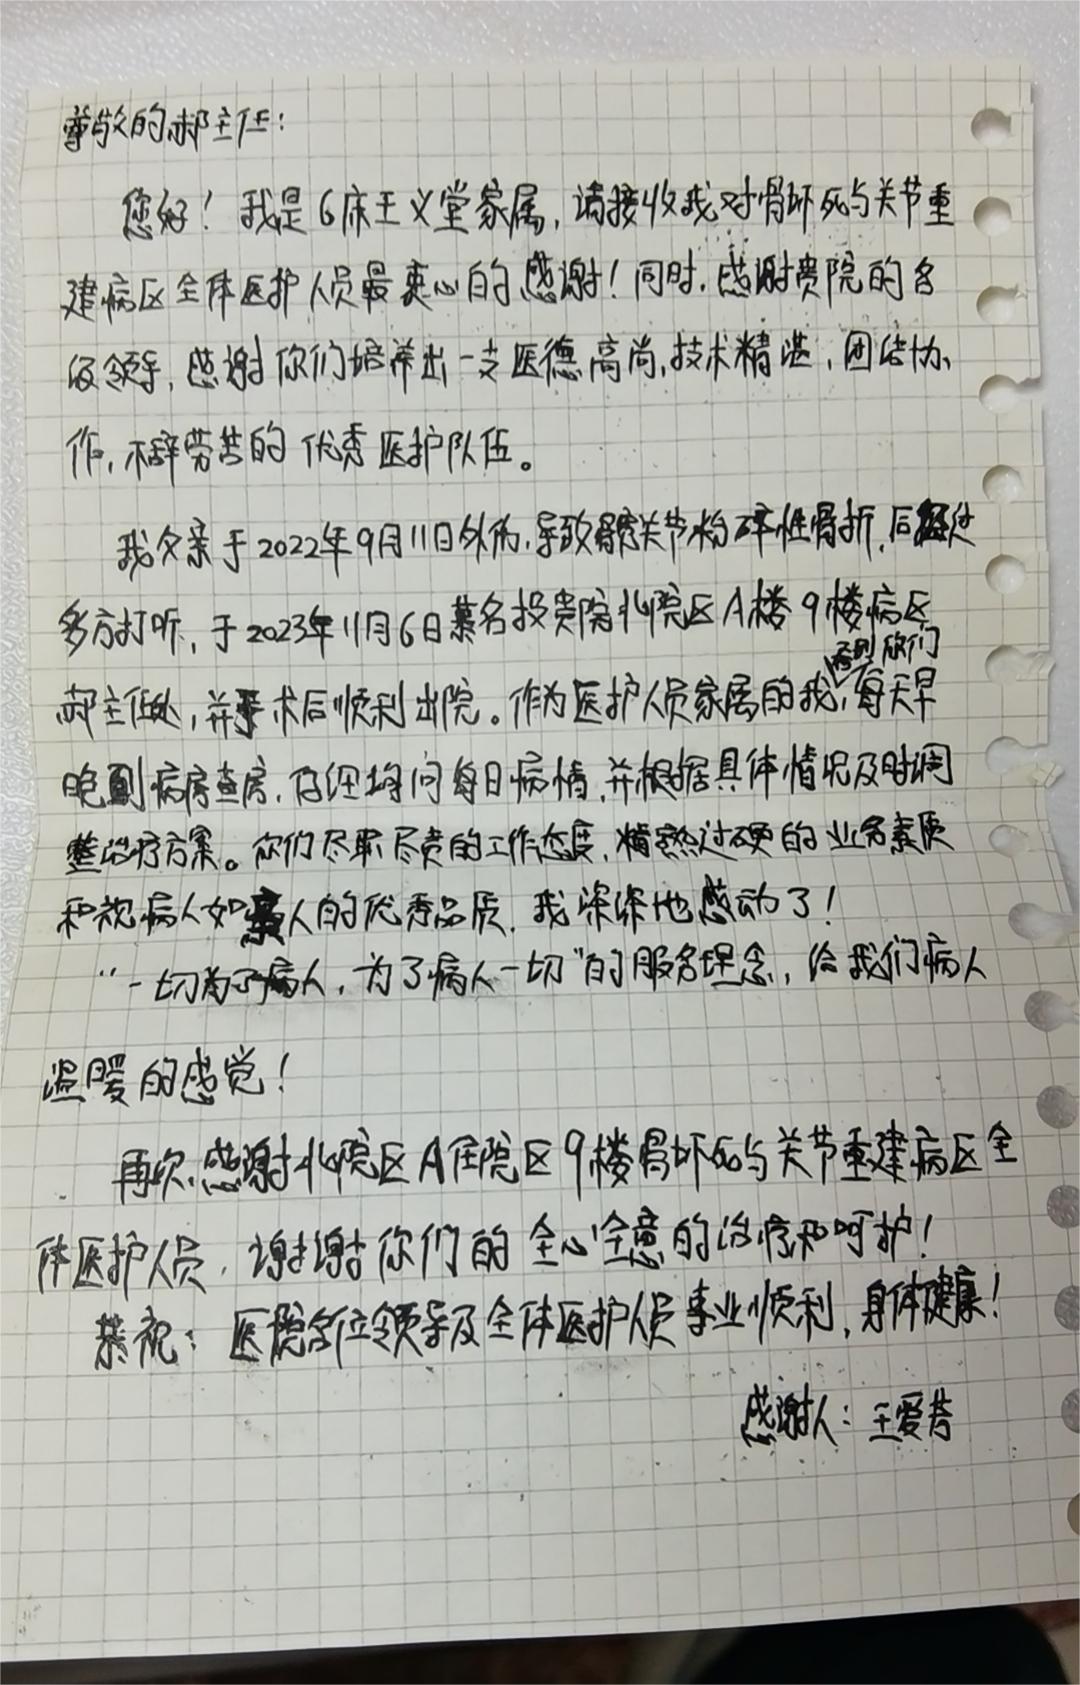 尊敬的郝主任：
您好！我是6床王义堂家属，请接收我对骨坏死与关节重
建病区全体医护人员最衷心的感谢！同时，感谢贵院的各
级领导，感谢你们培养出一支医德高尚，技术精湛，团结协
作，不辞劳苦的优秀医护队伍。
我父亲于2022年9月11日外伤，导致髋关节粉碎性骨折，后经过
多方打听，于2023年11月6日慕名投贵院北院区A楼9楼病区
看到你们
郝主任处，并手术后顺利出院。作为医护人员家属的我，每天早
晚到病房查房，仔细询问每日病情，并根据具体情况及时调
整治疗方案。你们尽职尽责的工作态度，精熟过硬的业务素质
和视病人如亲人的优秀品质，我深深地感动了！
“一切为了病人，为了病人一切”的服务理念，给我们病人
温暖的感觉！
再次感谢北院区A住院区9楼骨坏死与关节重建病区全
体医护人员，谢谢你们的全心全意的治疗和呵护！
恭祝：医院各位领导及全体医护人员事业顺利，身体健康！
感谢人：王爱芳